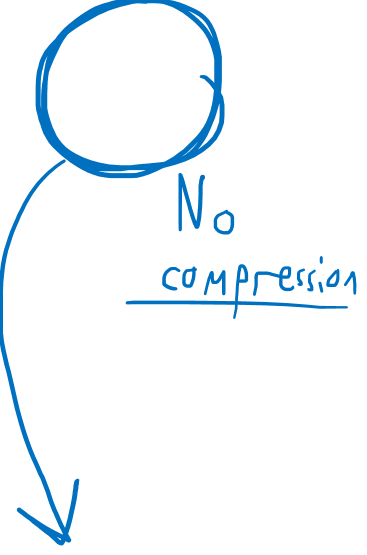 No
compression